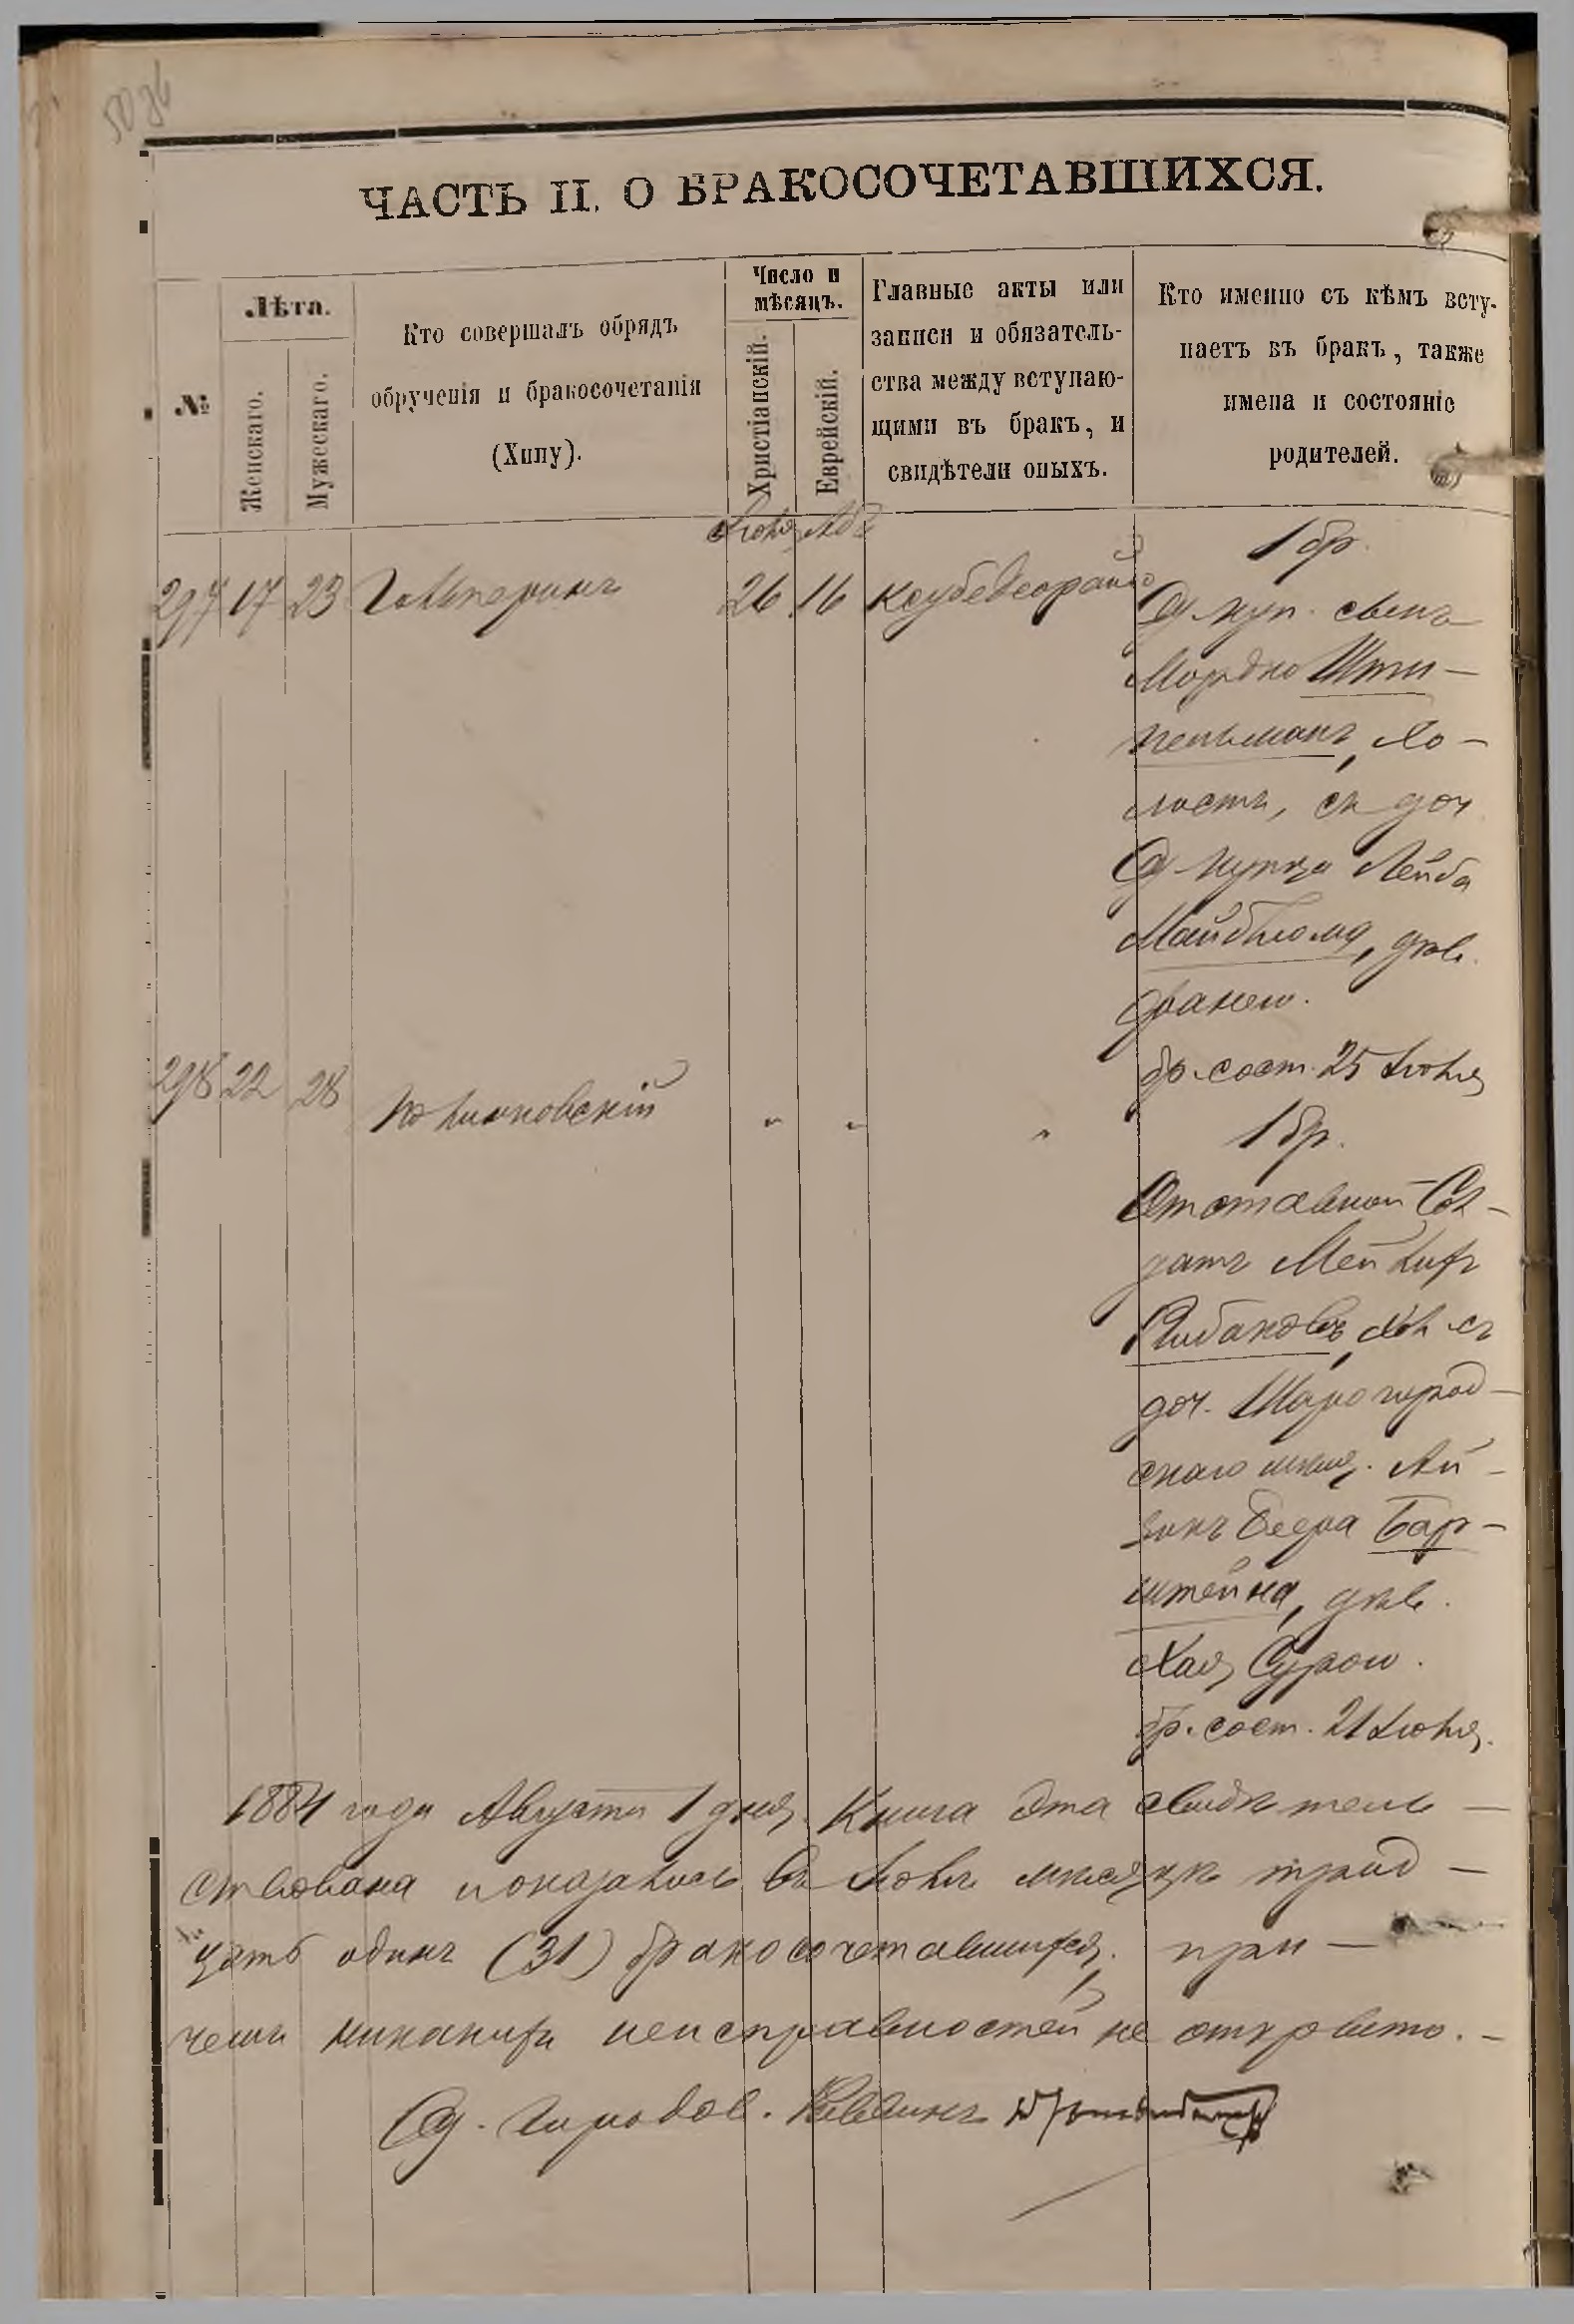 ЧАСТЬ II. О БРАКОСОЧЕТАВШИХСЯ.
№
Лѣта.
Женскаго.
Мужескаго.
Кто совершалъ обрядъ
обрученія и бракосочетанія
(Хупу).
Число и
мѣсяцъ.
Христіанскій.
Еврейскій.
Главные акты или
записи и обязатель-
ства между вступаю-
щими въ бракъ, и
свидѣтели оныхъ.
Кто именно съ кѣмъ всту-
паетъ въ бракъ, также
имена и состояніе
родителей.
Іюля Абъ
1 бр.
297 17 23 Гальперинъ 26 16
Од. куп. сынъ
Мордко Шти-
пельманъ, хо-
лостъ, съ доч.
Од. купца Лейба
Майблюма, дѣв.
бр. сост. 25 Іюля
298 22 28 Полиновскій " " "
1 бр.
Отставной Сол-
датъ Мейлихъ
Рибаковъ, хол. съ
доч. Шарогород-
скаго мѣщ. Ай-
зикъ Беера Бар-
штейна, дѣв.
Хая Сурою.
бр. сост. 21 Іюля.
1884 года Августа 1 дня. Книга эта свидѣтель-
ствована и оказалось въ Іюлѣ мѣсяцѣ трид-
цать одинъ (31) бракосочетавшихся, при-
чемъ никакихъ неисправностей не открыто.-
Од. Городов. Раввинъ